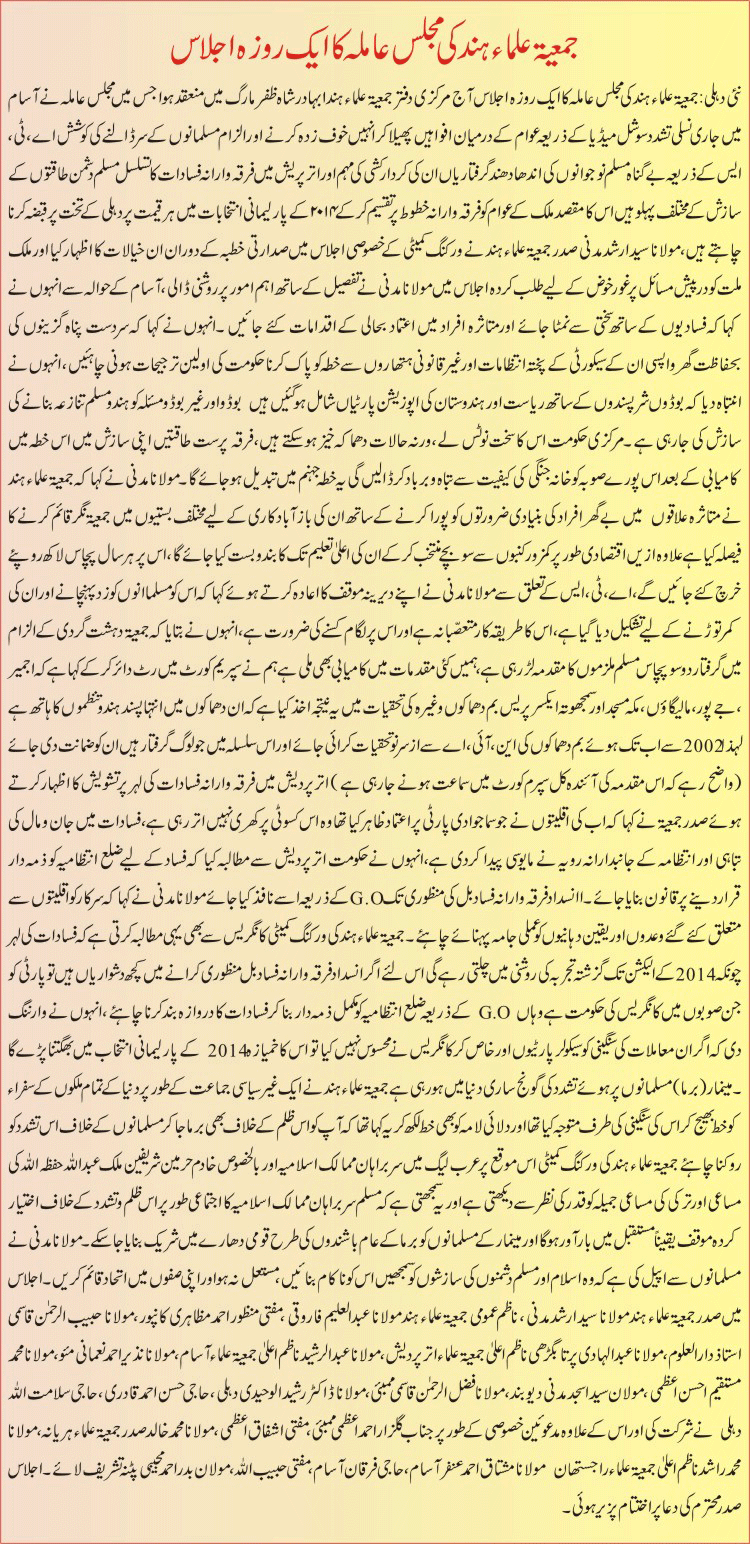 جمعیۃ علماء ہند کی مجلس عاملہ کا ایک روزہ اجلاس
نئی دہلی: جمعیۃ علماء ہند کی مجلس عاملہ کا ایک روزہ اجلاس آج مرکزی دفتر جمعیۃ علماء ہند ابہادر شاہ ظفر مارگ میں منعقد ہوا جس میں مجلس عاملہ نے آسام
میں جاری نسلی تشدد سوشل میڈیا کے ذریعہ عوام کے درمیان افواہیں پھیلا کر انہیں خوف زدہ کرنے اور الزام مسلمانوں کے سر ڈالنے کی کوشش اے، ٹی،
ایس کے ذریعہ بے گناہ مسلم نوجوانوں کی اندھا دھند گرفتاریاں ان کی کردار کشی کی مہم اور اتر پریش میں فرقہ وارانہ فسادات کا تسلسل مسلم دشمن طاقتوں کے
سازش کے مختلف پہلو ہیں اس کا مقصد ملک کے عوام کو فرقہ وارانہ خطوط پر تقسیم کر کے ۲۰۱۴ کے پارلیمانی انتخابات میں ہر قیمت پر دہلی کے تخت پر قبضہ کرنا
چاہتے ہیں، مولانا سید ارشد مدنی صدر جمعیۃ علماء ہند نے ورکنگ کمیٹی کے خصوصی اجلاس میں صدارتی خطبہ کے دوران ان خیالات کا اظہار کیا اور ملک
ملت کو درپیش مسائل پر غور خوض کے لیے طلب کردہ اجلاس میں مولانا مدنی نے تفصیل کے ساتھ اہم امور پر روشنی ڈالی، آسام کے حوالہ سے انہوں نے
کہا کہ فسادیوں کے ساتھ سختی سے نمٹا جائے اور متاثرہ افراد میں اعتماد بحالی کے اقدامات کئے جائیں۔ انہوں نے کہا کہ سردست پناہ گزینوں کی
بحفاظت گھر واپسی ان کے سیکورٹی کے پختہ انتظامات اور غیر قانونی ہتھاروں سے خطہ کو پاک کرنا حکومت کی اولین ترجیحات ہونی چاہئیں، انہوں نے
انتباہ دیا کہ بوڈوں شرپسندوں کے ساتھ ریاست اور ہندوستان کی اپوزیشن پارٹیاں شامل ہوگئیں ہیں بوڈو اور غیر بوڈو مسئلہ کو ہندو مسلم تنازعہ بنانے کی
سازش کی جارہی ہے۔ مرکزی حکومت اس کا سخت نوٹس لے، ورنہ حالات دھماکہ خیز ہوسکتے ہیں، فرقہ پرست طاقتیں اپنی سازش میں اس خطہ میں
کامیابی کے بعد اس پورے صوبہ کو خانہ جنگی کی کیفیت سے تباہ و برباد کر ڈالیں گی یہ خطہ جہنم میں تبدیل ہوجائے گا۔ مولانا مدنی نے کہا کہ جمعیۃ علماء ہند
نے متاثرہ علاقوں میں بے گھر افراد کی بنیادی ضرورتوں کو پورا کرنے کے ساتھ ان کی بازآبادکاری کے لیے مختلف بستیوں میں جمعیۃ نگر قائم کرنے کا
فیصلہ کیا ہے علاوہ ازیں اقتصادی طور پر کمزور کنبوں سے سو بچے منتخب کر کے ان کی اعلیٰ تعلیم تک کا بندوبست کیا جائے گا، اس پر ہر سال پچاس لاکھ روپئے
خرچ کئے جائیں گے، اے، ٹی، ایس کے تعلق سے مولانا مدنی نے اپنے دیرینہ موقف کا اعادہ کرتے ہوئے کہا کہ اس کو مسلماانوں کو زد پہنچانے اور ان کی
کمر توڑنے کے لیے تشکیل دیا گیا ہے، اس کا طریقہ کار متعصبانہ ہے اور اس پر لگام کسنے کی ضرورت ہے، انہوں نے بتایا کہ جمعیۃ دہشت گردی کے الزام
میں گرفتار دو سو پچاس مسلم ملزموں کا مقدمہ لڑ رہی ہے، ہمیں کئی مقدمات میں کامیابی بھی ملی ہے ہم نے سپریم کورٹ میں رٹ دائر کر کے کہا ہے کہ اجمیر
، جے پور، مالیگاؤں، مکہ مسجد اور سمجھوتہ ایکسپریس بم دھماکوں وغیرہ کی تحقیات میں یہ نتیجہ اخذ کیا ہے کہ ان دھماکوں میں انتہا پسند ہندو تنظموں کا ہاتھ ہے
لہذا 2002 سے اب تک ہوئے بم دھماکوں کی این، آئی، اے سے ازسرنو تحقیات کرائی جائے اور اس سلسلہ میں جو لوگ گرفتار ہیں ان کو ضمانت دی جائے
(واضح رہے کہ اس مقدمہ کی آئندہ کل سپرم کورٹ میں سماعت ہونے جارہی ہے) اتر پردیش میں فرقہ وارانہ فسادات کی لہر پر تشویش کا اظہار کرتے
ہوئے صدر جمعیۃ نے کہا کہ اب کی اقلیتوں نے جو سماجوادی پارٹی پر اعتماد ظاہر کیا تھا وہ اس کسوٹی پر کھری نہیں اتر رہی ہے، فسادات میں جان و مال کی
تباہی اور انتظامہ کے جانبدارانہ رویہ نے مایوسی پیدا کردی ہے، انہوں نے حکومت اتر پردیش سے مطالبہ کیا کہ فساد کے لیے ضلع انتظامیہ کو ذمہ دار
قرار دینے پر قانون بنایا جائے۔ اانسداد فرقہ وارانہ فساد بل کی منظوری تک G.O کے ذریعہ اسے نافذ کیا جائے مولانا مدنی نے کہا کہ سرکار کو اقلیتوں سے
متعلق کئے گئے وعدوں اور یقین دہانیوں کو عملی جامہ پہنانے چاہئے۔ جمعیۃ علماء ہند کی ورکنگ کمیٹی کانگریس سے بھی یہی مطالبہ کرتی ہے کہ فسادات کی لہر
چونکہ 2014 کے الیکشن تک گزشتہ تجربہ کی روشنی میں چلتی رہے گی اس لئے اگر انسداد فرقہ وارانہ فساد بل منظوری کرانے میں کچھ دشواریاں ہیں تو پارٹی کو
جن صوبوں میں کانگریس کی حکومت ہے وہاں G.O کے ذریعہ ضلع انتظامیہ کو مکمل ذمہ دار بنا کر فسادات کا دروازہ بند کرنا چاہئے، انہوں نے وارننگ
دی کہ اگر ان معاملات کی سنگینی کو سیکولر پارٹیوں اور خاص کر کانگریس نے محسوس نہیں کیا تو اس کا خمیازہ 2014 کے پارلیمانی انتخاب میں بھگتنا پڑے گا
۔ مینمار (برما) مسلمانوں پر ہوئے تشدد کی گونج ساری دنیا میں ہورہی ہے جمعیۃ علماء ہند نے ایک غیر سیاسی جماعت کے طور پر دنیا کے تمام ملکوں کے سفراء
کو خط بھیج کر اس کی سنگینی کی طرف متوجہ کیا تھا اور دلائی لامہ کو بھی خط لکھ کر یہ کہا تھا کہ آپ کو اس ظلم کے خلاف بھی برما جا کر مسلمانوں کے خلاف اس تشدد کو
روکنا چاہئے جمعیۃ علماء ہند کی ورکنگ کمیٹی اس موقع پر عرب لیگ میں سربراہان ممالک اسلامیہ اور بالخصوص خادم حرمین شریفین ملک عبد اللہ حفظہ اللہ کی
مساعی اور ترکی کی مساعی جمیلہ کو قدر کی نظر سے دیکھتی ہے اور یہ سمجھتی ہے کہ مسلم سربراہان ممالک اسلامیہ کا اجتماعی طور پر اس ظلم و تشدد کے خلاف اختیار
کردہ موقف یقیناً مستقبل میں بارآور ہوگا اور مینمار کے مسلمانوں کو برما کے عام باشندوں کی طرح قومی دھارے میں شریک بنایا جاسکے۔ مولانا مدنی نے
مسلمانوں سے اپیل کی ہے کہ وہ اسلام اور مسلم دشمنوں کی سازشوں کو سمجھیں اس کو ناکام بنائیں، مستعل نہ ہو اور اپنی صفوں میں اتحاد قائم کریں۔ اجلاس
میں صدر جمعیۃ علماء ہند مولانا سید ارشد مدنی، ناظم عمومی جمعیۃ علماء ہند مولانا عبد العلیم فاروقی، مفتی منظور احمد مظاہری کانپور، مولانا حبیب الرحمٰن قاسمی
استاذ دارالعلوم، مولانا عبد الہادی پرتابگڑھی ناظم اعلیٰ جمعیۃ علماء اتر پردیش، مولانا عبد الرشید ناظم اعلیٰ جمعیۃ علماء آسام، مولانا نذیر احمد نعمانی مئو، مولانا محمد
مستقیم احسن اعظمی، مولان سید اسجد مدنی دیوبند، مولانا فضل الرحمٰن قاسمی ممبئی، مولانا ڈاکٹر رشید الوحیدی دہلی، حاجی حسن احمد قادری، حاجی سلامت اللہ
دہلی نے شرکت کی اور اس کے علاوہ مدعوئین خصوصی کے طور پر جناب گلزار احمد اعظمی ممبئی، مفتی اشفاق اعظمی، مولانا محمد خالد صدر جمعیۃ علماء ہریانہ، مولانا
محمد راشد ناظم اعلیٰ جمعیۃ علماء راجستھان مولانا مشتاق احمد عنفر آسام، حاجی فرقان آسام، مفتی حبیب اللہ، مولان بدر احمد مجیبی پٹنہ تشریف لائے۔ اجلاس
صدر محترم کی دعا پر اختتام پزیر ہوئی۔